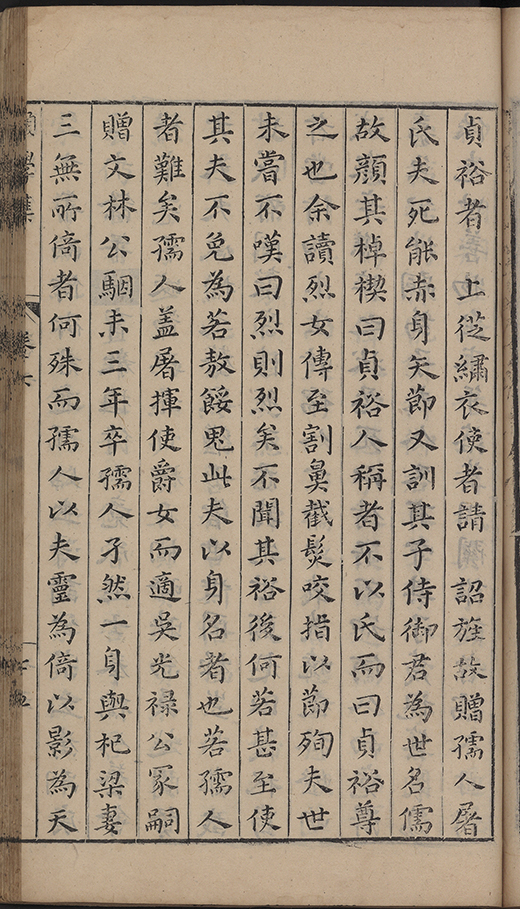 貞裕者　上從繡衣使者請　詔旌故贈孺人屠
氏夫死能赤身矢節又訓其子侍御君為世名儒
故顏其棹楔曰貞裕人稱者不以氏而曰貞裕尊
之也余讀烈女傳至割鼻截髮咬指以節殉夫世
未嘗不嘆曰烈則烈矣不聞其裕後何若甚至使
其夫不免為若敖餒鬼此夫以身名者也若孺人
者難矣孺人盖屠揮使爵女而適吳光禄公冢嗣
贈文林公駰未三年卒孺人孑然一身與杞梁妻
三無所倚者何殊而孺人以夫靈為倚以影為天
卷六